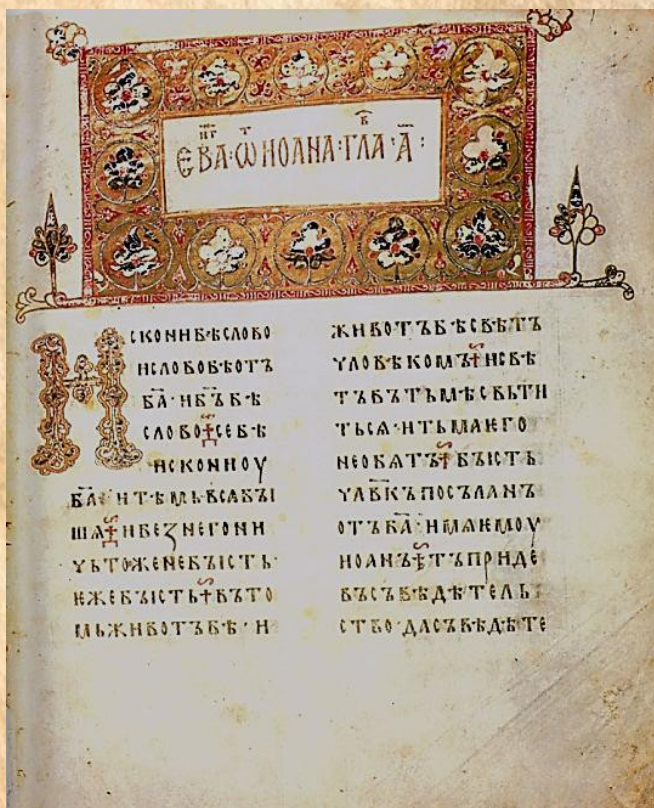 ЄВ҃А·Ѿ ИОАНА·ГЛА·А҃:
ИСКОНИБѢСЛОВО
ИСЛОВОБѢОТЪ
БА҃·ИБЪ҃БѢ
СЛОВО СЕБѢ
ИСКОНИОУ
БА҃·ИТѢМЬВСѦБꙐ
ШѦ ИБЕЗНЕГОНИ
ЧЬТОЖЕНЕБꙐСТЬ·
ѤЖЕБꙐСТЬ ВЪТО
МЬЖИВОТЪБѢ·И
ЖИВОТЪБѢСВѢТЪ
ЧЛОВѢКОМЪ ИСВѢ
ТЪВЪТЬМѢСВЬТИ
ТЬСѦ·ИТЬМАѤГО
НЕОБѦТЪ БꙐСТЬ
ЧЛВ҃КЪПОСЪЛАНЪ
ОТЪБА҃·ИМѦѤМОУ
ИОАНЪ ТЪПРИДЕ
ВЪСЪВѢДѢТЕЛЬ
СТВО·ДАСЪВѢДѢТЕ